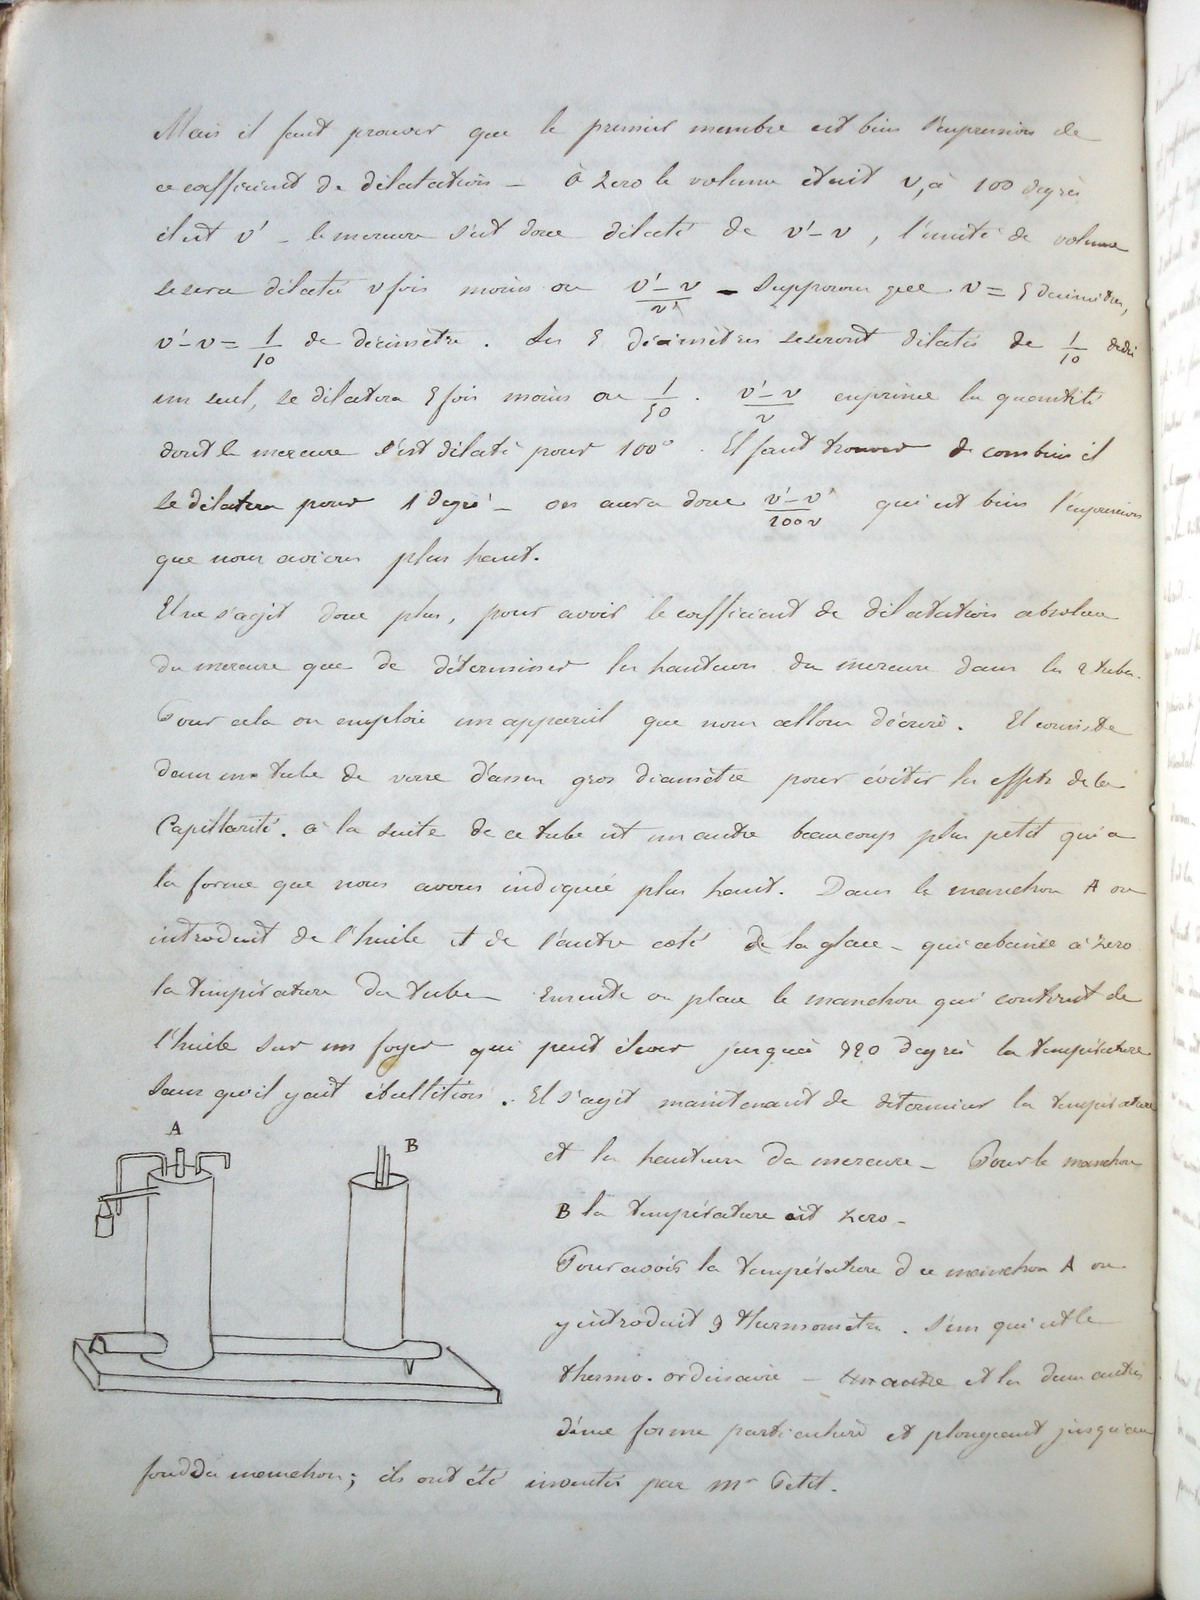 Mais il faut prouver que le premier membre est bien l'expression de
ce coefficient de dilatation – à zero le volume était v, à 100 degrés
il est v' – le mercure s'est donc dilaté de v'-v, l'unité de volume
se sera dilatée v fois moins ou v'-v/v – Supposons que v = 5 décimètres,
v'-v = 1/10 de décimètre. Les 5 décimètres se seront dilatés de 1/10 de déc
un seul, se dilatera 5 fois moins ou 1/50. v'-v/v exprime la quantité
dont le mercure s'est dilaté pour 100°. Il faut trouver de combien il
se dilatera pour 1 degré – on aura donc v'-v/100v qui est bien l'expression
que nous avions plus haut.
Il ne s'agit donc plus, pour avoir le coefficient de dilatation absolue
du mercure que de déterminer les hauteurs du mercure dans les 2 tubes.
Pour cela on emploie un appareil que nous allons décrire. Il consiste
dans un tube de verre d'assez gros diamètre pour éviter les effets de la
Capillarité. à la suite de ce tube est un autre beaucoup plus petit qui a
la forme que nous avons indiquée plus haut. Dans le manchon A on
introduit de l'huile et de l'autre coté de la glace – qui abaisse à zero
la température du tube – Ensuite on place le manchon qui contient de
l'huile sur un foyer qui peut élever jusqu'à 320 degrés la température
sans qu'il y ait ébullition. Il s'agit maintenant de déterminer la température
A
B
et les hauteurs du mercure – Pour le manchon
B la température est zero –
Pour avoir la température du manchon A on
y introduit 3 thermomètres. l'un qui est le
thermo. ordinaire – et les deux autres
d'une forme particulière et plongeant jusqu'au
fond du manchon; ils ont été inventés par mr Petit.